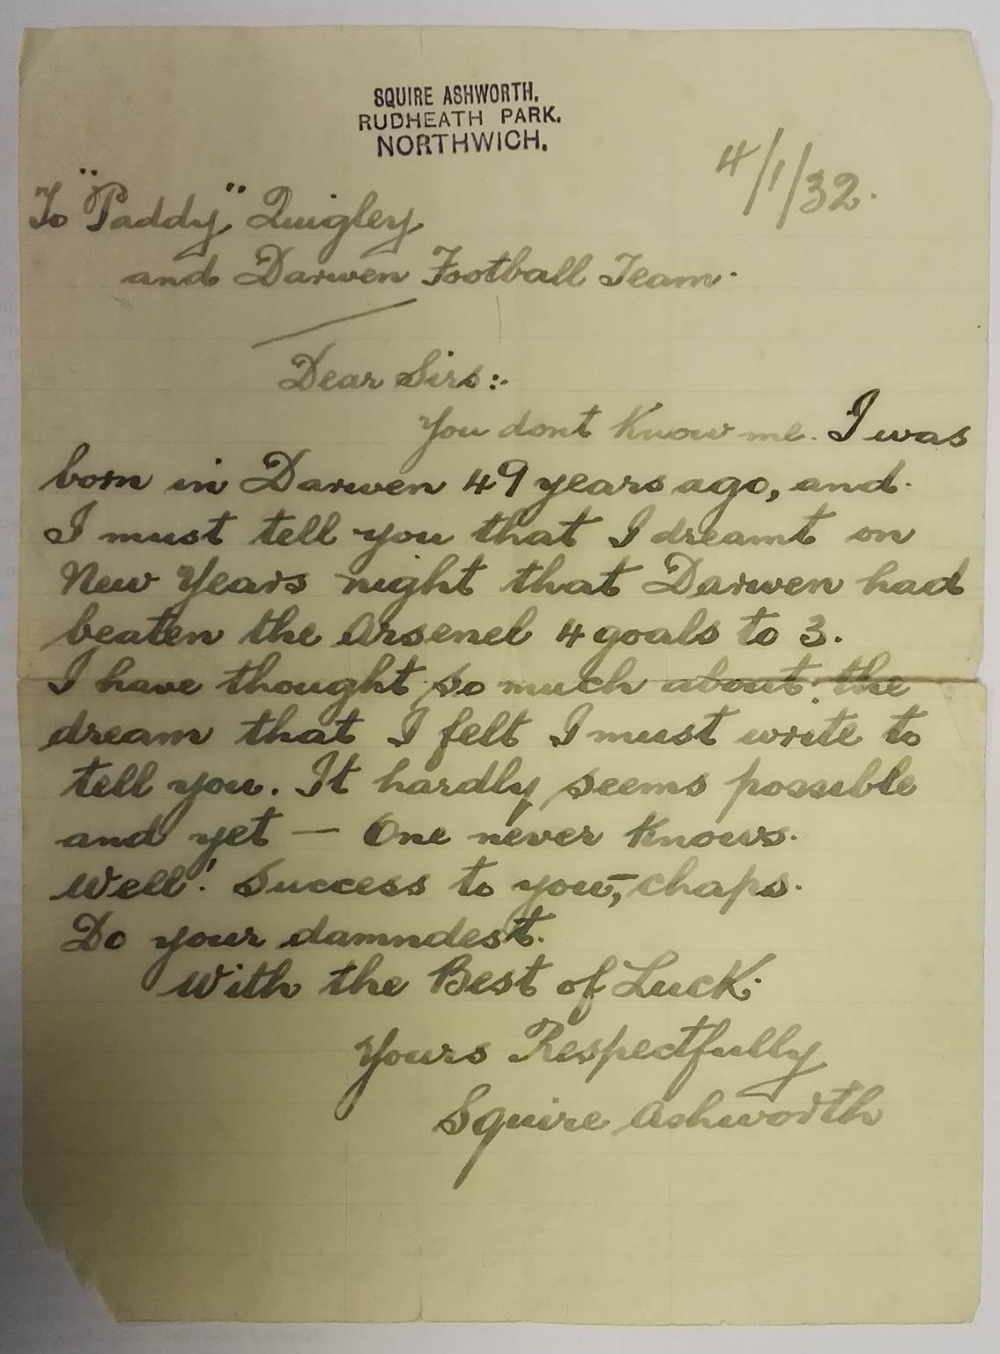 SQUIRE ASHWORTH.
RUDHEATH PARK.
NORTHWICH.
4/1/32.
To "Paddy" Quigley
and Darwen Football Team.
Dear Sirs:.
You dont Know me. I was
born in Darwen 49 years ago, and.
I must tell you that I dreamt on
New Years night that Darwen had
beaten the Arsenel 4 goals to 3.
I have thought so much about the
dream that I felt I must write to
tell you. It hardly seems possible
and yet — One never Knows.
Well! Success to you, chaps.
Do your damndest.
With the Best of Luck.
Yours Respectfully
Squire Ashworth